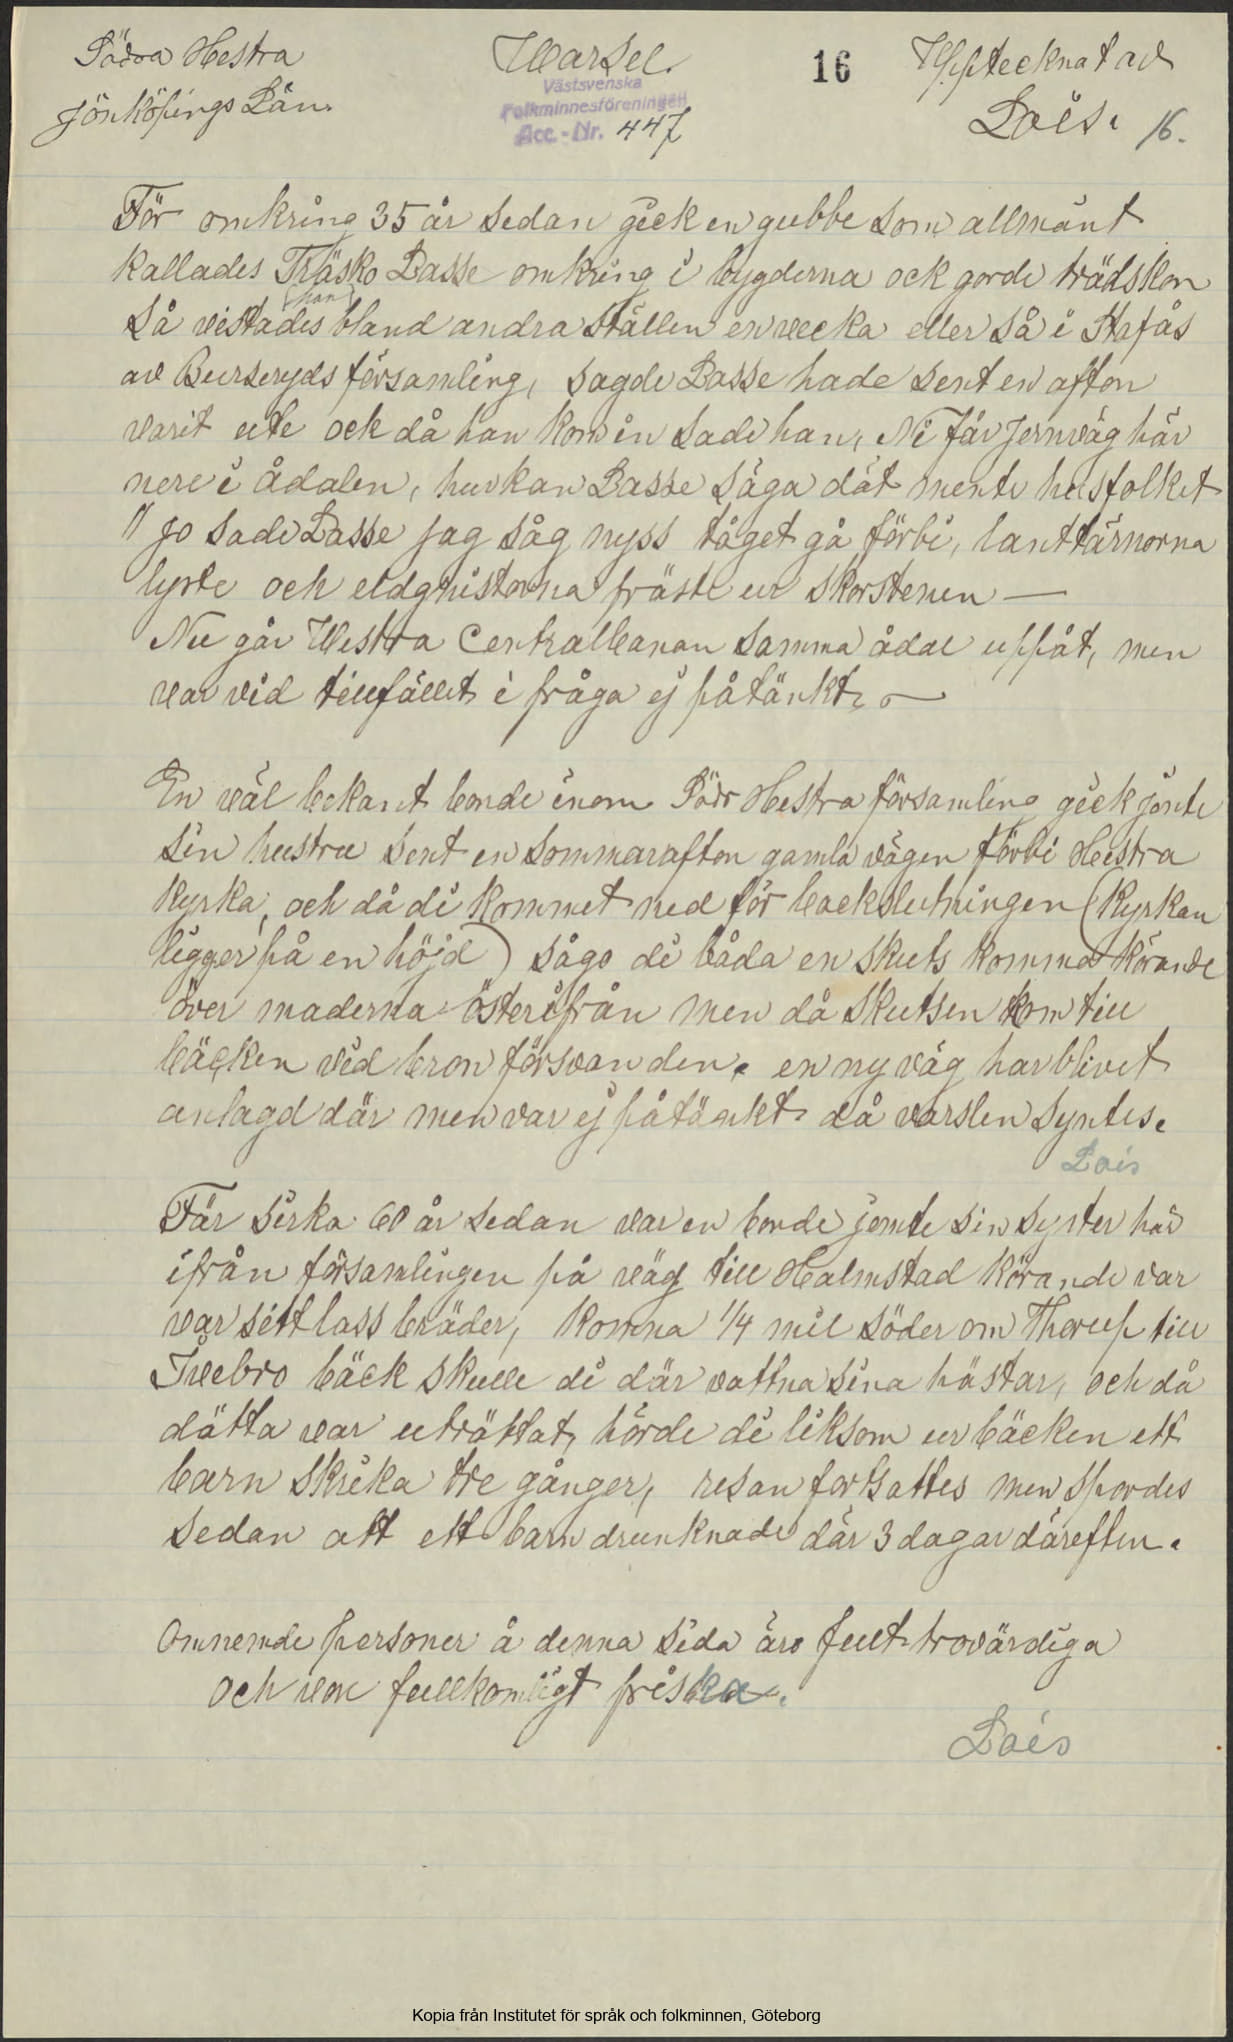 Södra Hestra
Jönköpings Län.
Warsel.
Västsvenska
Folkminnesföreningen
Acc.-Nr. 447
16
Upptecknat av
Lois. 16.
För omkring 35 år sedan gick en gubbe som allmänt
kallades Träsko Lasse omkring i bygderna ock gorde trädskor
så vistades han bland andra ställen en vecka eller så i Stafås
av Burseryds församling, sagde Lasse hade sent en afton
varit ute ock då han kom in sade han, Ni får Jernväg här
nere i ådalen, hur kan Lasse säga dät mente husfolket
"Jo sade Lasse jag såg nyss tåget gå förbi, lanttärnorna
lyste och eldgnistorna fräste ur skorstenen —
Nu går Westra Centralbanan samma ådal uppåt, men
var vid tillfället i fråga ej påtänkt, —
En väl bekant bonde inom Södr Hestra församling gick jönte
sin hustru sent en sommarafton gamla vägen förbi Hestra
Kyrka, och då di kommet ned för backslutningen (Kyrkan
ligger på en höjd) sågo di båda en skuts komma körande
över maderna österifrån men då skutsen kom till
bäcken vid bron försvan den. en ny väg har blivet
anlagd där men var ej påtänkt då varslen syntes.
Lois
Får sirka 60 år sedan var en bonde jemte sin syster här
ifrån församlingen på väg till Halmstad körande var
var sitt lass bräder, komna 1/4 mil söder om Thorup till
bäck skulle di där vattna sina hästar, och då
dätta var uträttat, hörde di liksom ur bäcken ett
barn skrika tre gånger, resan fortsattes men spordes
sedan att ett barn drunknade där 3 dagar därefter.
Omnemde personer å denna sida äro fult trovärdiga
och voro fullkomligt friska.
Lois
Kopia från Institutet för språk och folkminnen, Göteborg